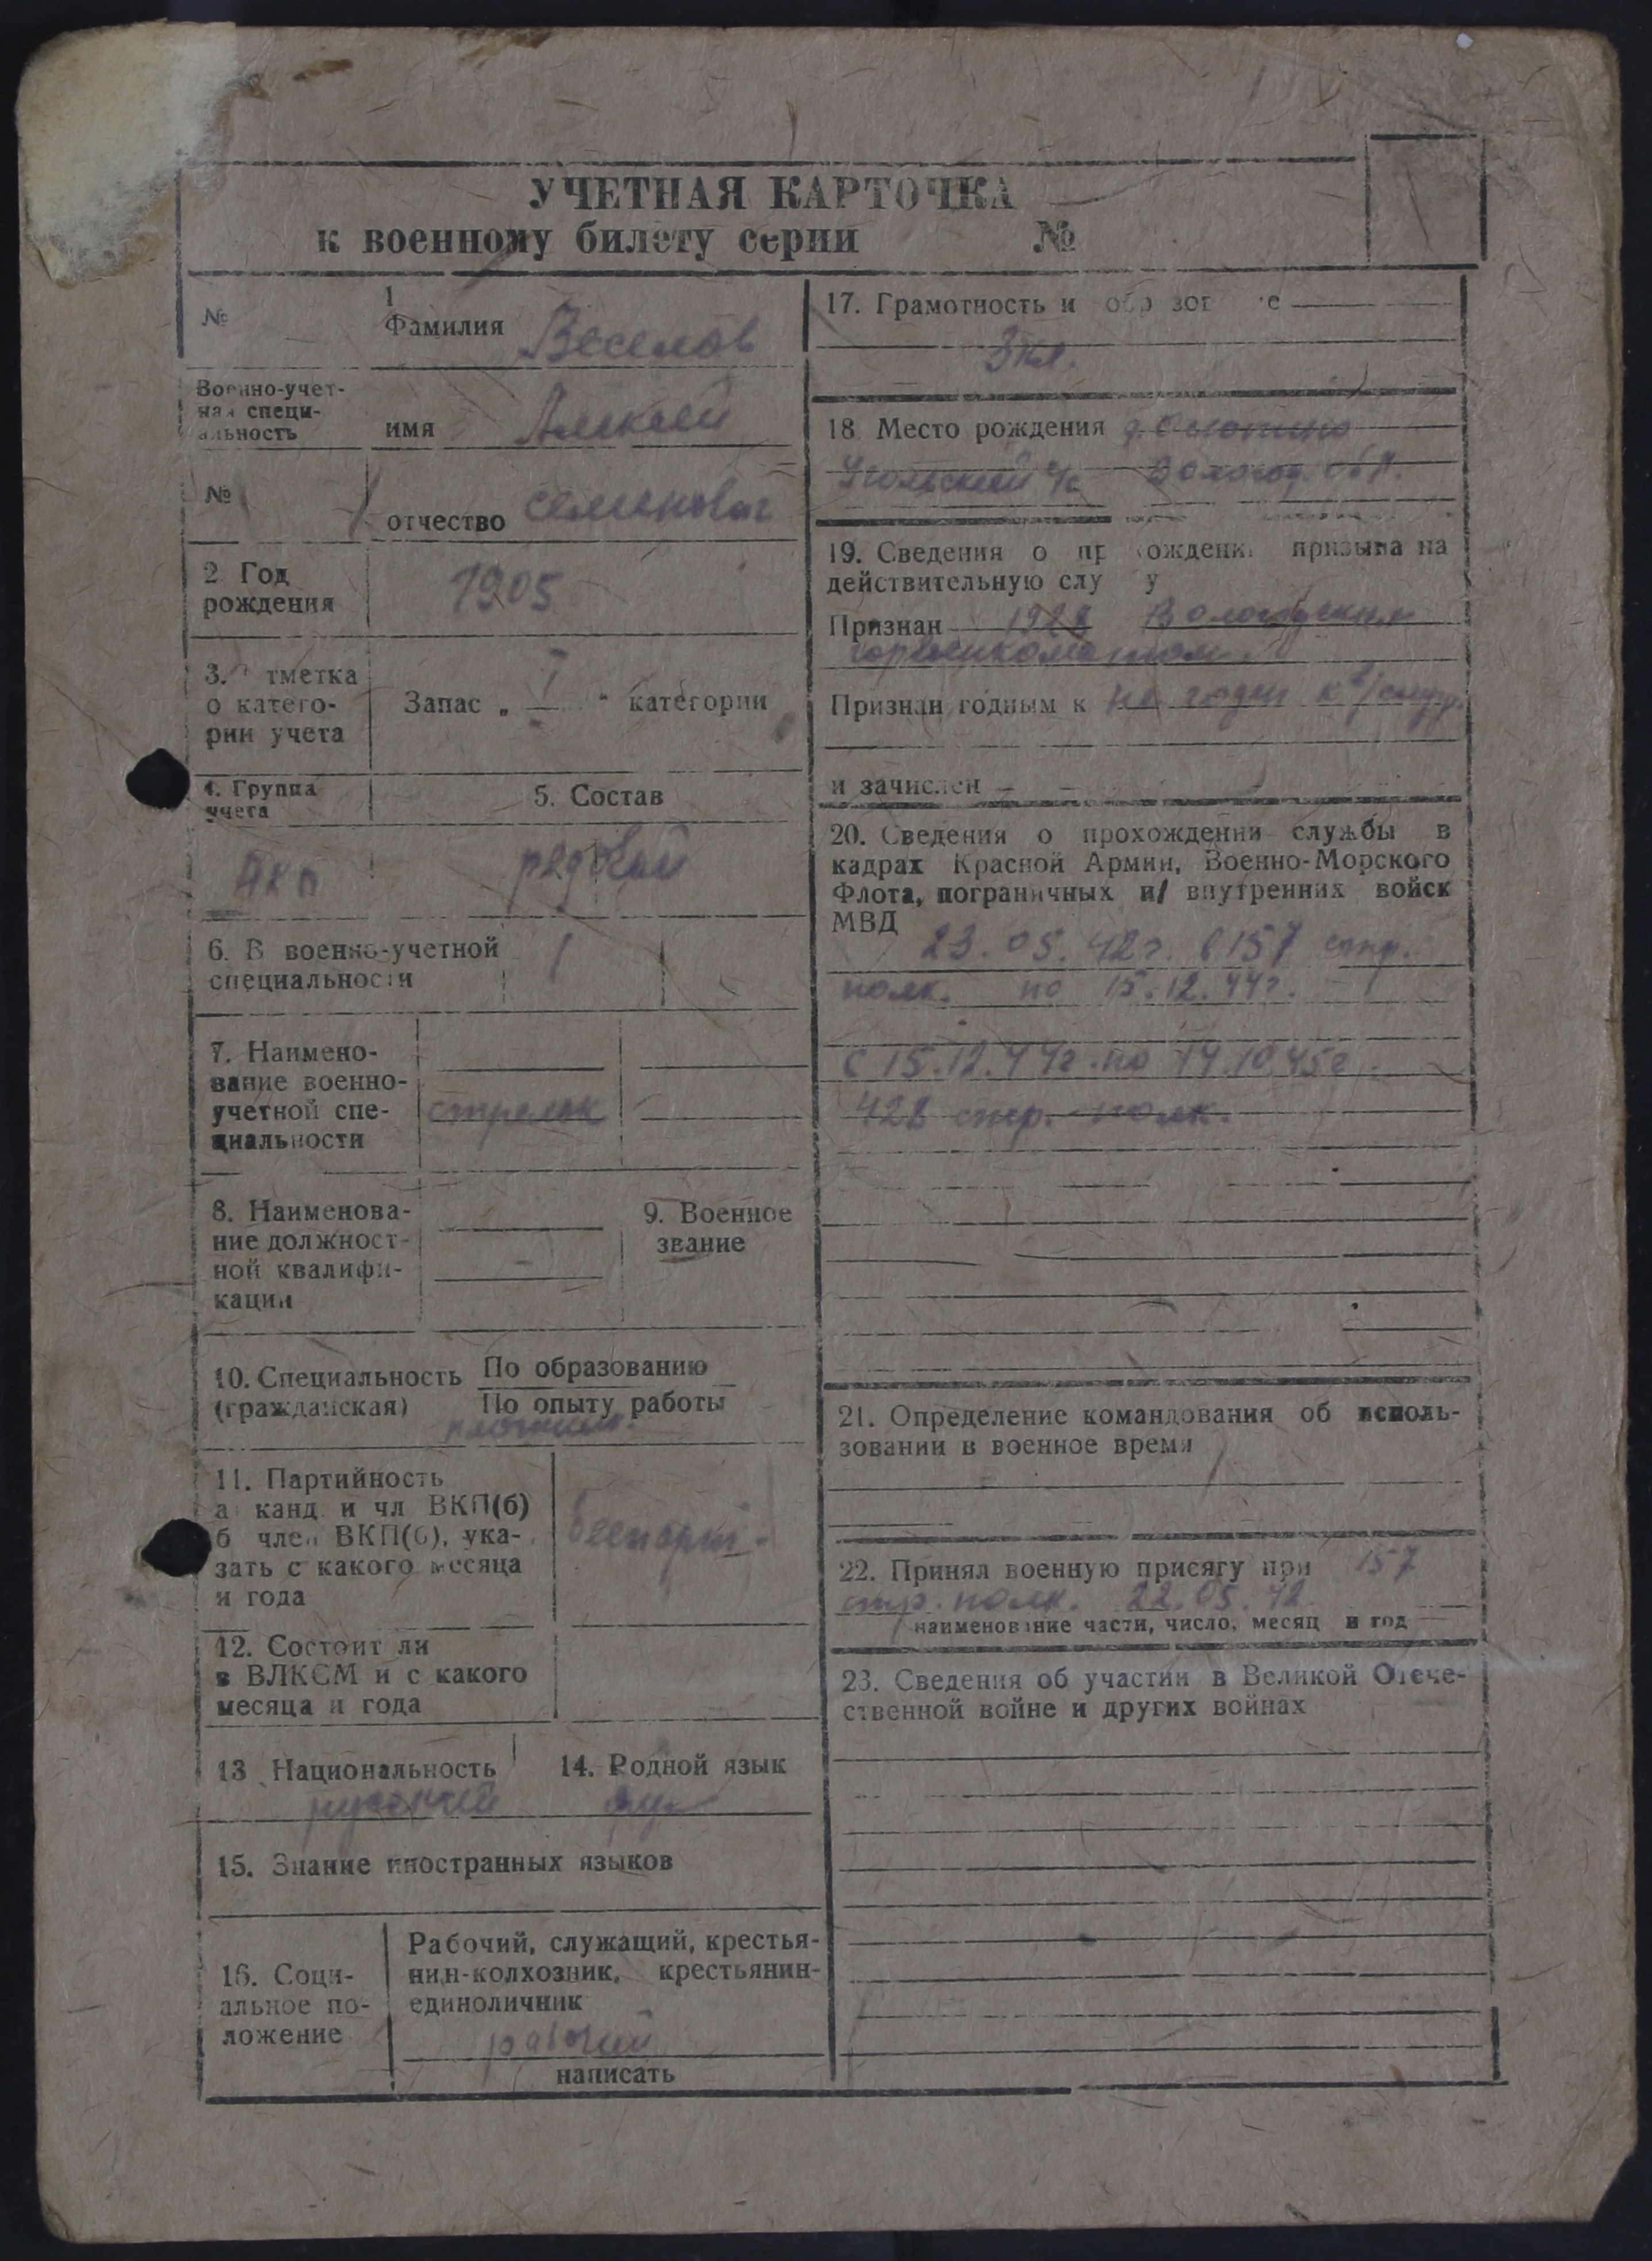 УЧЕТНАЯ КАРТОЧКА
к военному билету серии №
№
1
Фамилия Веселов
Военно-учет-
ная специ-
альность
имя Алексей
№
отчество Семенович
2 Год
рождения
1905
3. Отметка
о катего-
рии учета
Запас „ I " категории
4. Группа
учета
5. Состав
рядовой
6. В военно-учетной
специальности
7. Наимено-
вание военно-
учетной спе-
циальности
стрелок
8. Наименова-
ние должност-
ной квалифи-
кации
9. Военное
звание
10. Специальность
(гражданская)
По образованию
По опыту работы
плотник.
11. Партийность
а канд. и чл ВКП(б)
б член ВКП(б), ука-
зать с какого месяца
и года
беспарт.
12. Состоит ли
в ВЛКСМ и с какого
месяца и года
13 Национальность
русский
14. Родной язык
рус
15. Знание иностранных языков
16. Соци-
альное по-
ложение
Рабочий, служащий, крестья-
нин-колхозник, крестьянин-
единоличник
рабочий
написать
17. Грамотность и образование
3 кл.
18 Место рождения д.
Угольский с/с Вологод. обл.
19. Сведения о прохождении призыва на
действительную службу
Признан 1928 Вологодским
горвоенкоматом
Признан годным к не годен к в/служ.
и зачислен
20. Сведения о прохождении службы в
кадрах Красной Армии, Военно-Морского
Флота, пограничных и/ внутренних войск
МВД
23.05.42г. в 157 стр.
полк. по 15.12.44г.
с 15.12.44г. по 14.10 45г.
428 стр. полк.
21. Определение командования об исполь-
зовании в военное время
22. Принял военную присягу при 157
стр. полк. 22.05.42
наименование части, число, месяц и год
23. Сведения об участии в Великой Отече-
ственной войне и других войнах